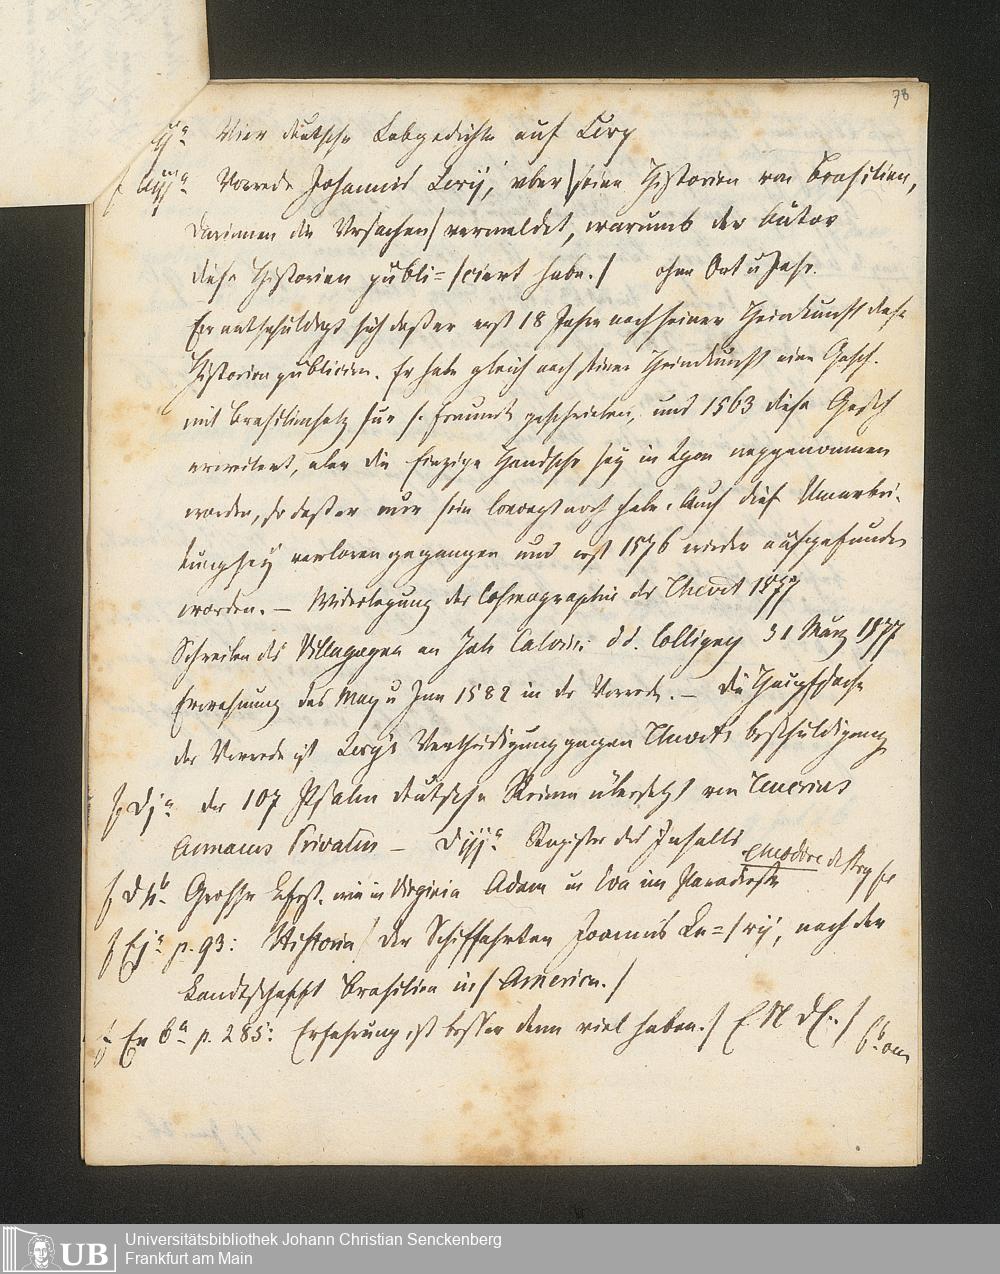 78
Vier deutsche Lobgedichte auf Lery
Vorrede Johannis Lerij, vber / seine Historien von Brasilien,
darinnen die Vrsachen / vermeldet, warumb der Autor
diese Historien publi= / ciert habe. / ohne Ort u Jahr.
Er entschuldigt sich daß er erst 18 Jahre nach seiner Heimkunft diese
Historien publiciere. Er habe gleich nach seiner Heimkunft eine Gesch.
mit Brasilienholz für s. Freunde geschrieben, und 1563 diese Gesch
erweitert, aber die einzige Handschr sey in Lyon weggenommen
worden, so daß er nur sein Concept noch habe. Auch diese Umarbei-
tung sey verloren gegangen und erst 1576 wieder aufgefunden
worden. — Widerlegung der Cosmographie des Thevet 1577
Schreiben des Villagagon an Joh Calvin: dd. Colligny 31 März 1577
Erwehnung des May u Jun 1582 in der Vorrede. — die Hauptsache
der Vorrede ist Lery's Vertheidigung gegen Thevets beschuldigung
der 107 Psalm deutsche Reime übersetzt von
Annaeus Privatus — Diij a Register des Inhalts
Große Kpfrst. wie in Virginia Adam u Eva im Paradiese Theodore de Bry fe
Ej a p. 93: Historia / der Schiffahrten Joannis Le= / rij, nach der
Landtschafft Brasilien in / America. /
p. 285: Erfahrung ist besser denn viel haben. / E N D E. /
UB Universitätsbibliothek Johann Christian Senckenberg
Frankfurt am Main